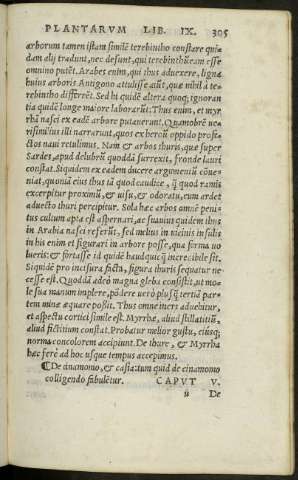 PLANTARVM LIB. IX. 305
arborum tamen istam similē terebintho constare qui-
dam alij tradunt, nec desunt, qui terebinthū eam esse
omnino putēt. Arabes enim, qui thus aduexere, ligna
huius arboris Antigono attulisse aiūt, quæ nihil à te-
rebintho differrēt. Sed hi quidē altera quoq; ignoran
tia quidē longe maiore laborarūt. Thus enim, et myr
rhā nasci ex eadē arbore putauerant. Quamobrē ue-
risimilius illi narrarunt, quos ex heroū oppido profe-
ctos naui retulimus. Nam & arbos thuris, quæ super
Sardes, apud delubrū quoddā surrexit, fronde lauri
constat. Siquidem ex eadem ducere argumentū cōue-
niat, quoniā eius thus tā quod caudice, q̄ quod ramis
excerpitur proximū, & uisu, & odoratu, cum ardet
aduecto thuri percipitur. Sola hæc arbos omnē peni-
tus culum apta est aspernari, ac suauius quidem thus
in Arabia nasci referūt, sed melius in uicinis insulis
in his enim et figurari in arbore posse, qua forma uo
lueris: & fortasse id quidē haudquicq̄ incredibile sit.
Siquidē pro incisura facta, figura thuris sequatur ne
cesse est. Quoddā adeò magna gleba consistit, ut mo-
le sua manum implere, pōdere uerò plusq̄ tertiā par-
tem minæ æquare possit. Thus omne iners aduehitur,
et aspectu cortici simile est. Myrrhæ, aliud stillatitiū,
aliud fictitium constat. Probatur melior gustu, eiusq;
norma concolorem accipiunt. De thure, & Myrrha
hæc ferè ad hoc usque tempus accepimus.
¶De cinamomo, & casia: tum quid de cinamomo
colligendo fabulētur. CAPVT V.
u De